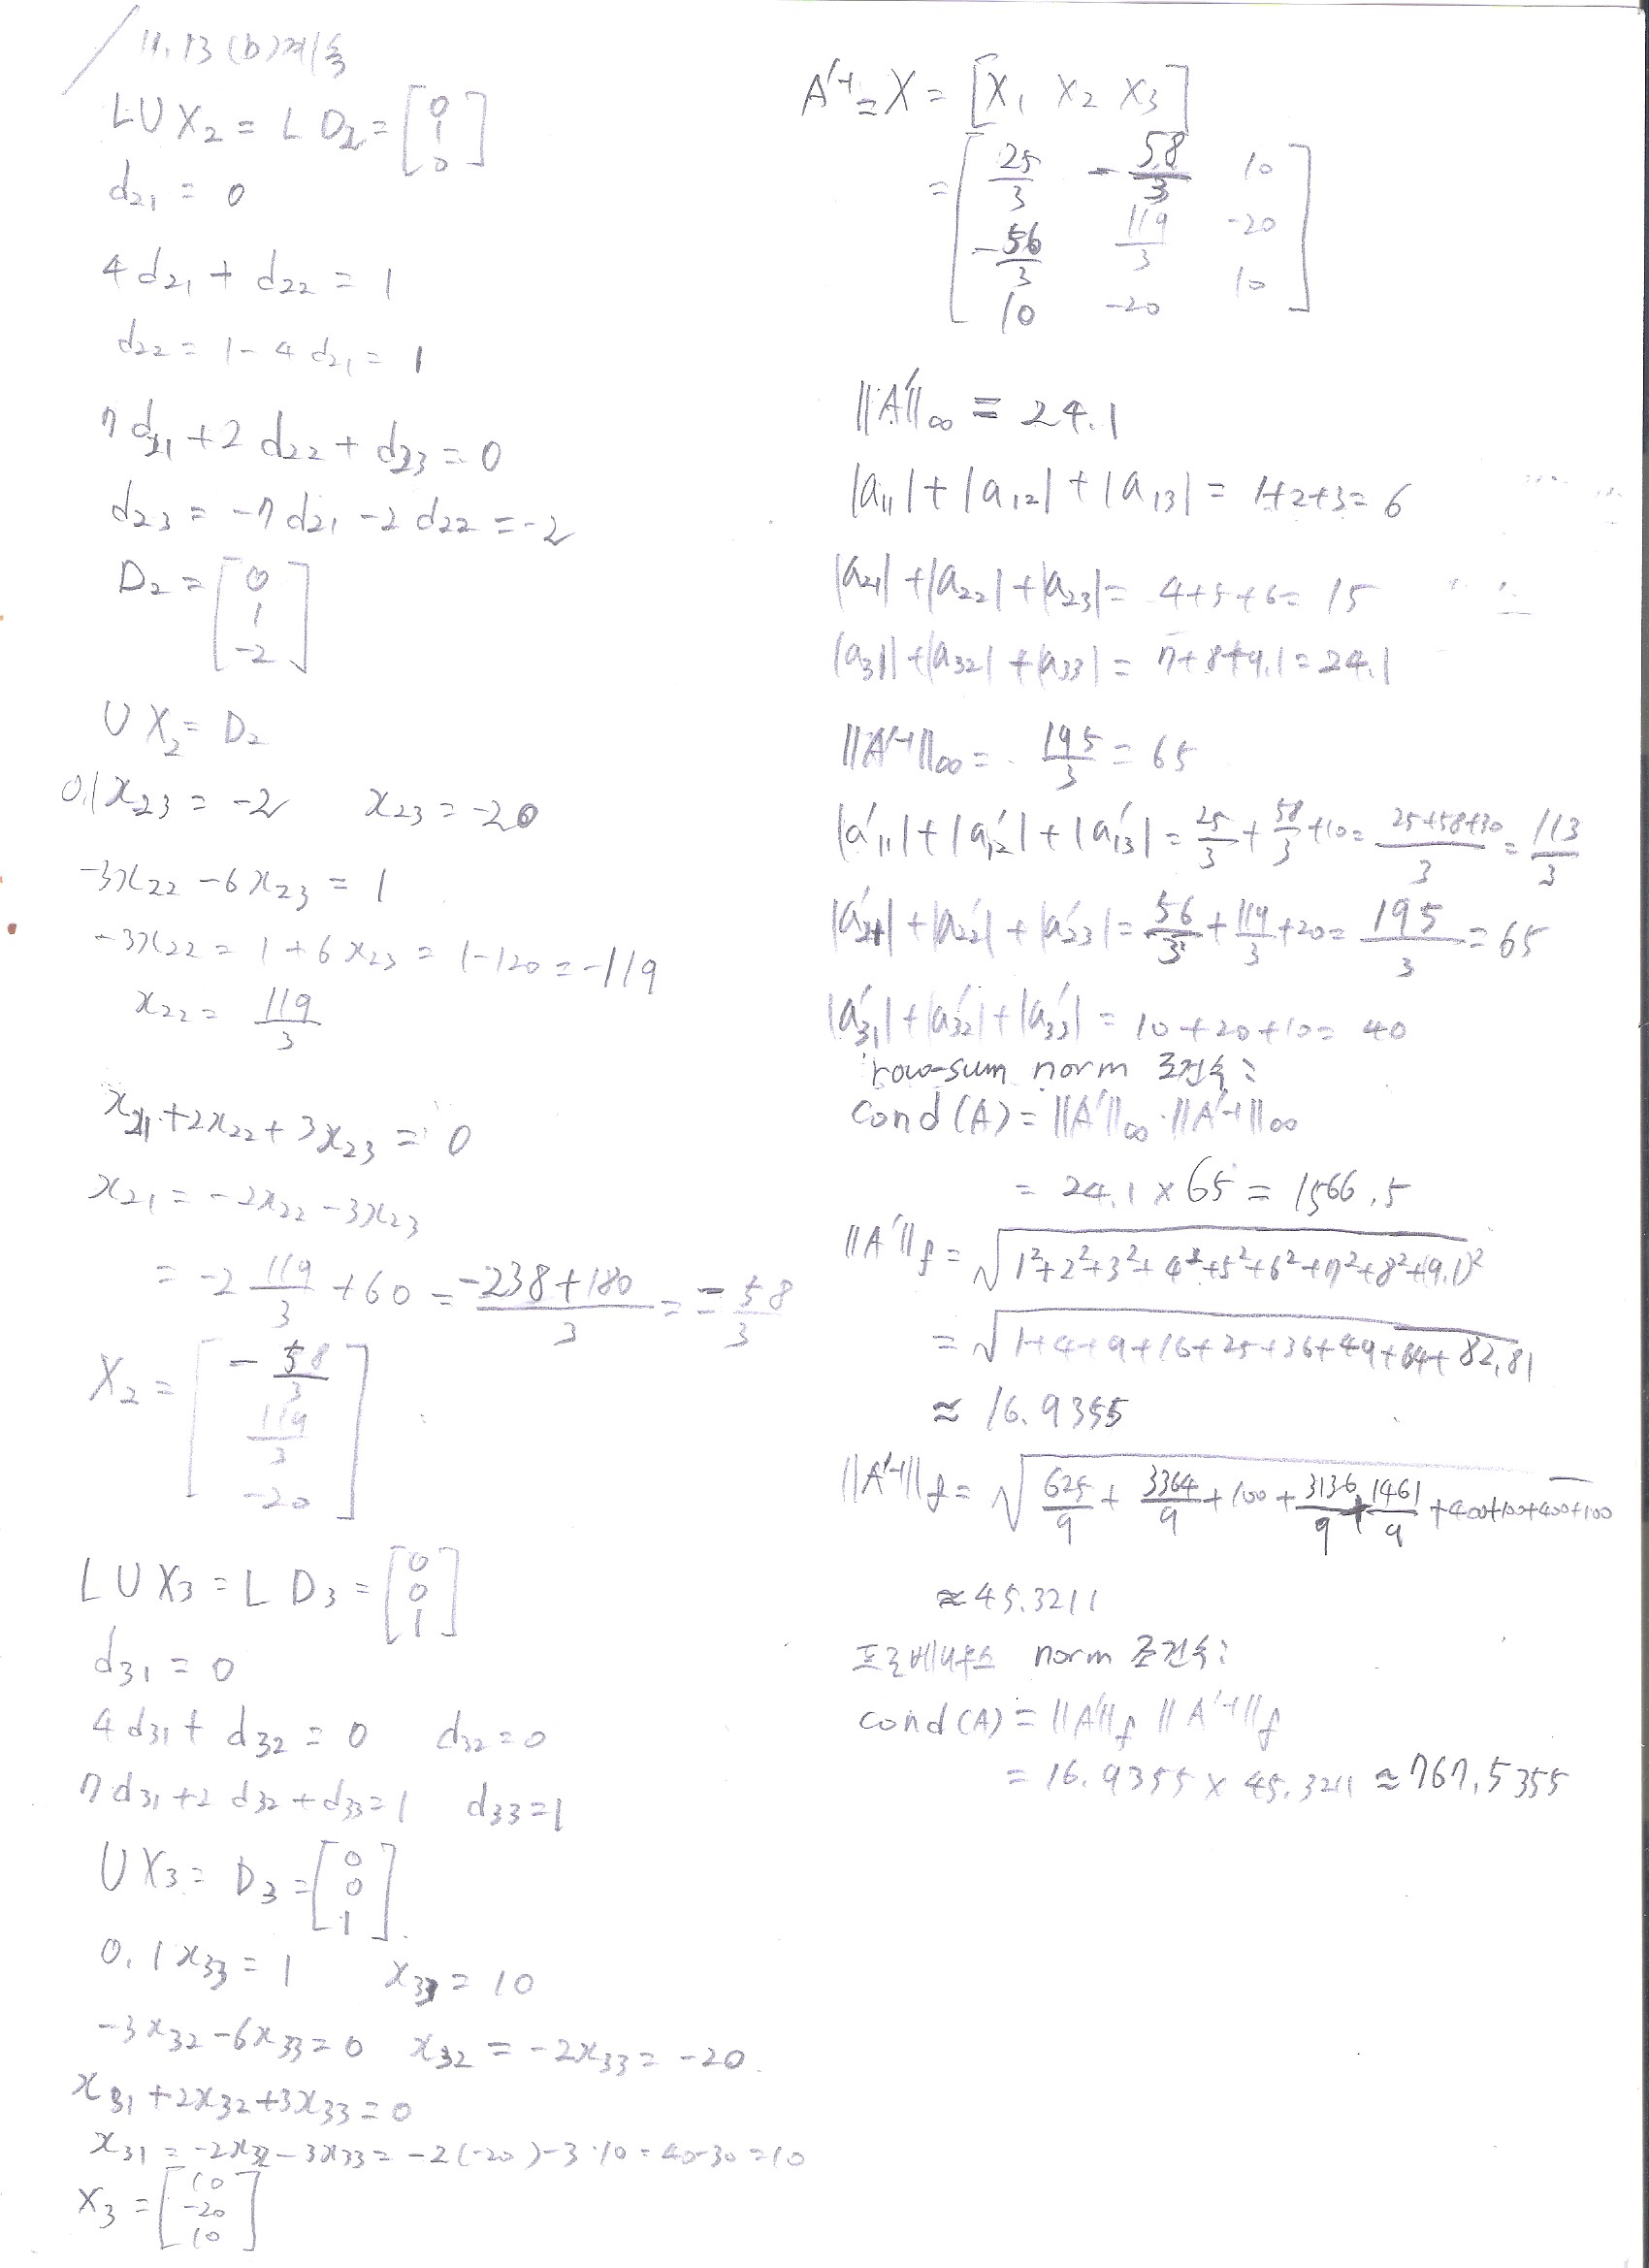 11.13 (b) 계속
LUX₂ = LD₂ = [0 1 0]
d₂₁ = 0
4d₂₁ + d₂₂ = 1
d₂₂ = 1 - 4d₂₁ = 1
7d₂₁ + 2d₂₂ + d₂₃ = 0
d₂₃ = -7d₂₁ - 2d₂₂ = -2
D₂ = [0 1 -2]
UX₂ = D₂
0.1x₂₃ = -2 x₂₃ = -20
-3x₂₂ - 6x₂₃ = 1
-3x₂₂ = 1 + 6x₂₃ = 1 - 120 = -119
x₂₂ = 119/3
x₂₁ + 2x₂₂ + 3x₂₃ = 0
x₂₁ = -2x₂₂ - 3x₂₃
= -2 119/3 + 60 = (-238+180)/3 = -58/3
X₂ = [-58/3 119/3 -20]
LUX₃ = LD₃ = [0 0 1]
d₃₁ = 0
4d₃₁ + d₃₂ = 0 d₃₂ = 0
7d₃₁ + 2d₃₂ + d₃₃ = 1 d₃₃ = 1
UX₃ = D₃ = [0 0 1]
0.1x₃₃ = 1 x₃₃ = 10
-3x₃₂ - 6x₃₃ = 0 x₃₂ = -2x₃₃ = -20
x₃₁ + 2x₃₂ + 3x₃₃ = 0
x₃₁ = -2x₃₂ - 3x₃₃ = -2(-20) - 3·10 = 40-30 = 10
X₃ = [10 -20 10]
A'⁻¹ = X = [X₁ X₂ X₃]
= [25/3 -58/3 10
-56/3 119/3 -20
10 -20 10]
||A'||∞ = 24.1
|a₁₁| + |a₁₂| + |a₁₃| = 1+2+3 = 6
|a₂₁| + |a₂₂| + |a₂₃| = 4+5+6 = 15
|a₃₁| + |a₃₂| + |a₃₃| = 7+8+9.1 = 24.1
||A'⁻¹||∞ = 195/3 = 65
|a'₁₁| + |a'₁₂| + |a'₁₃| = 25/3 + 58/3 + 10 = (25+58+30)/3 = 113/3
|a'₂₁| + |a'₂₂| + |a'₂₃| = 56/3 + 119/3 + 20 = 195/3 = 65
|a'₃₁| + |a'₃₂| + |a'₃₃| = 10+20+10 = 40
row-sum norm 조건수:
cond(A) = ||A'||∞·||A'⁻¹||∞
= 24.1 × 65 = 1566.5
||A'||f = √(1²+2²+3²+4²+5²+6²+7²+8²+(9.1)²)
= √(1+4+9+16+25+36+49+64+82.81)
≈ 16.9355
||A'⁻¹||f = √(625/9 + 3364/9 + 100 + 3136/9 + 1461/9 + 400+100+400+100)
≈ 45.3211
프로베니우스 norm 조건수:
cond(A) = ||A'||f ||A'⁻¹||f
= 16.9355 × 45.3211 ≈ 767.5355